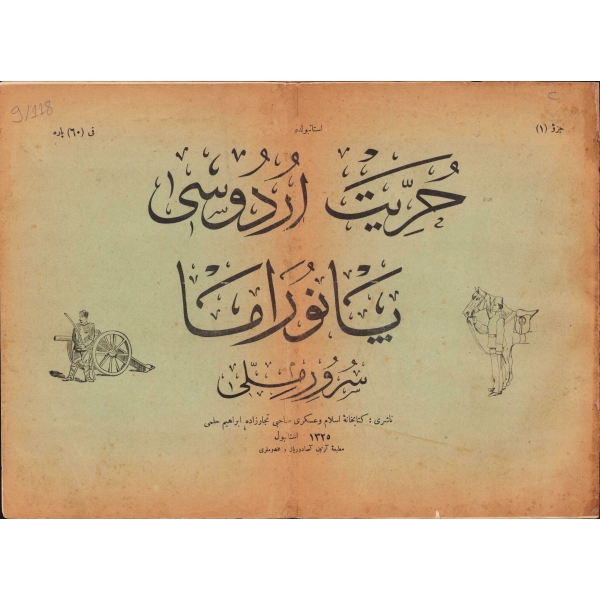 9/118
جزؤ (١) استانبولده فی (٦٠) پاره
حُرِّیَت اُردُوسی
پانُوراما
سُرُورِ مِلّی
ناشری : کتابخانهٔ اسلام و عسکری صاحبی تجارزاده ابراهیم حلمی
١٣٢٥ استانبول
مطبعهٔ آرتین آصادوریان و